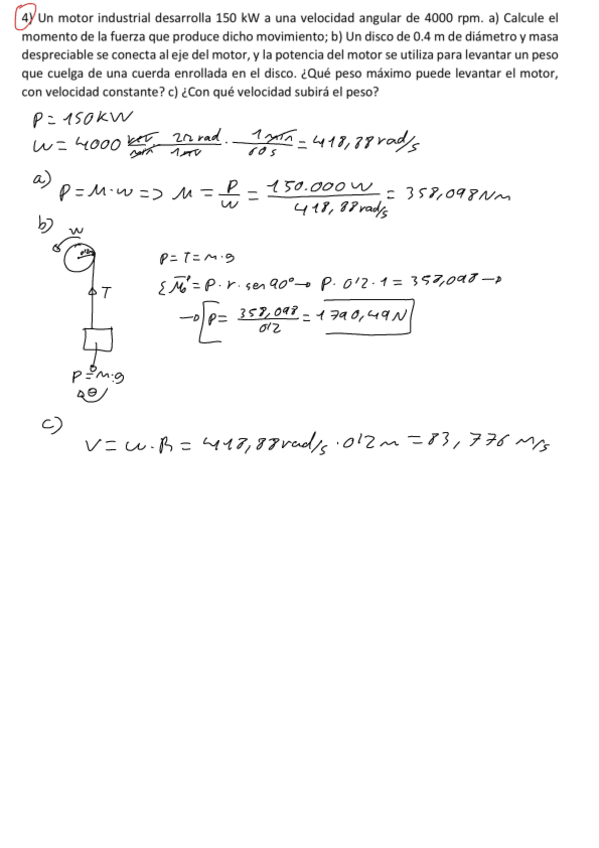 4) Un motor industrial desarrolla 150 kW a una velocidad angular de 4000 rpm. a) Calcule el
momento de la fuerza que produce dicho movimiento; b) Un disco de 0.4 m de diámetro y masa
despreciable se conecta al eje del motor, y la potencia del motor se utiliza para levantar un peso
que cuelga de una cuerda enrollada en el disco. ¿Qué peso máximo puede levantar el motor,
con velocidad constante? c) ¿Con qué velocidad subirá el peso?
P = 150KW
W = 4000 rev/min · 2π rad/1 rev · 1 min/60 s = 418,88 rad/s
a)
P = M·w => M = P/W = 150.000 W/418,88 rad/s = 358,098 Nm
b)
W
P = T = m·g
ΣM₀ = P · r · sen 90° → P · 0'2 · 1 = 358,098 →
T
→ P = 358,098/0'2 = 1790,49 N
P = m·g
c)
V = w · R = 418,88 rad/s · 0'2 m = 83,776 m/s